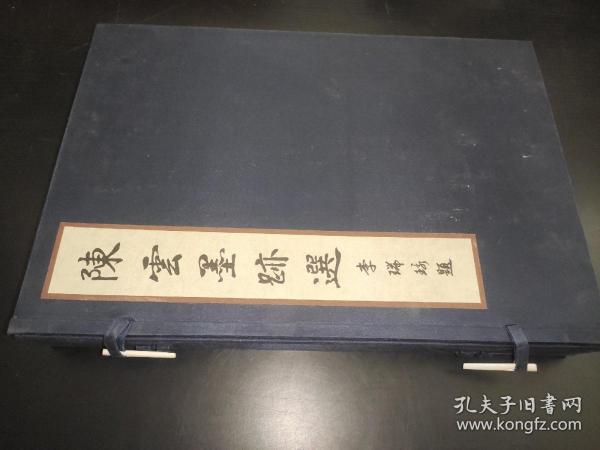 陳雲墨跡選
李瑞環題
孔夫子旧書网
www.kongfz.com